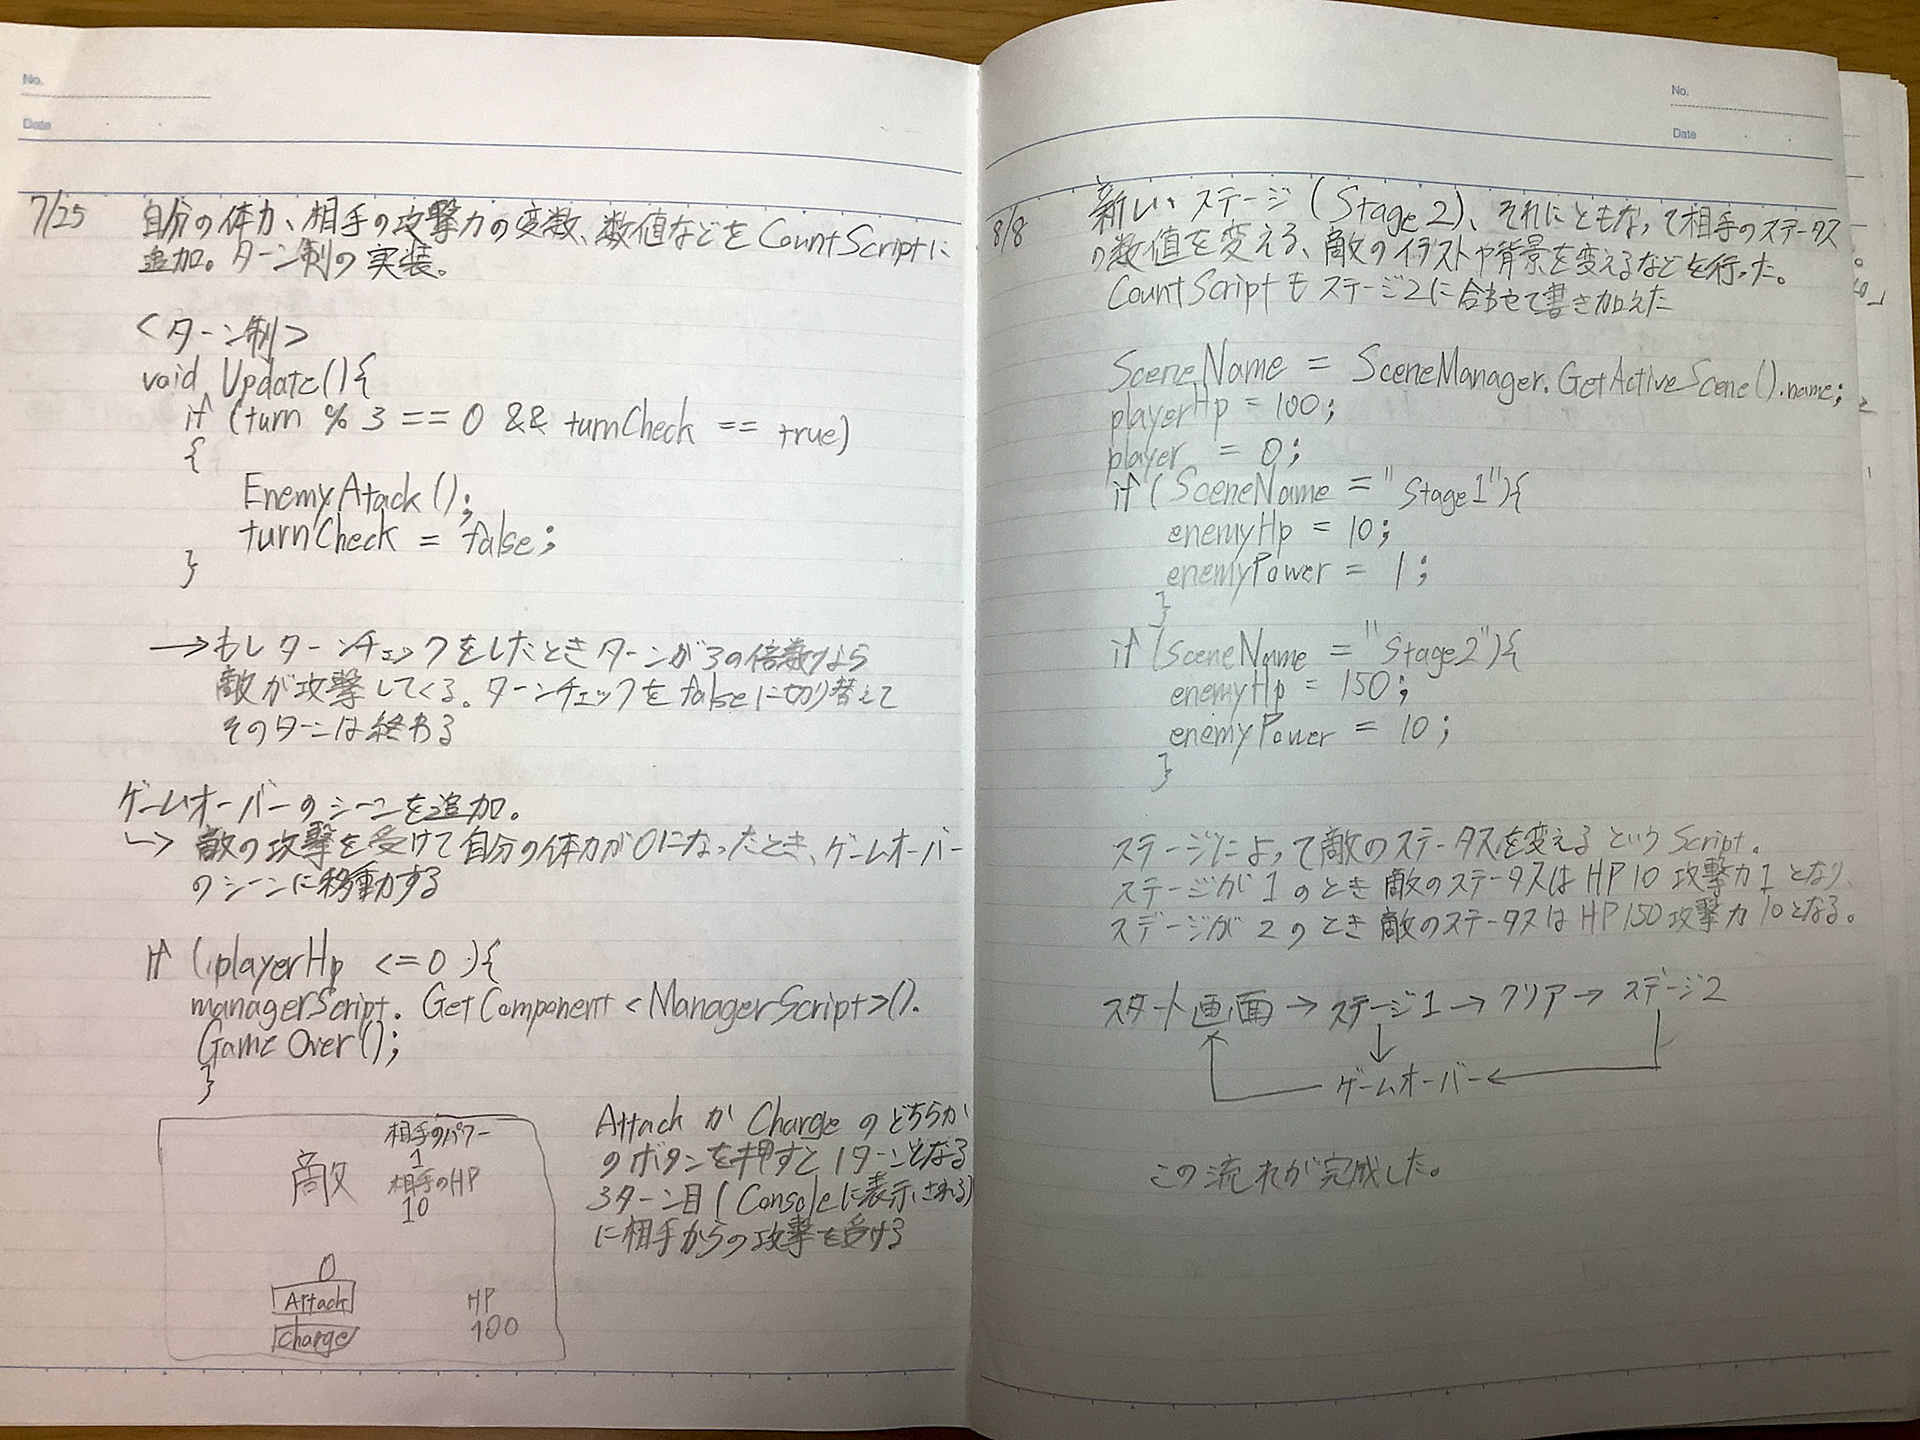 No.
Date
7/25 自分の体力、相手の攻撃力の変数、数値などをCountScriptに
追加。ターン制の実装。
<ターン制>
void Update(){
if (turn % 3 == 0 && turnCheck == true)
{
EnemyAtack();
turnCheck = false;
}
→もしターンチェックをしたときターンが3の倍数なら
敵が攻撃してくる。ターンチェックをfalseに切り替えて
そのターンは終わる
ゲームオーバーのシーンを追加。
↳ 敵の攻撃を受けて自分の体力が0になったとき、ゲームオーバー
のシーンに移動する
if (playerHp <= 0){
managerScript.GetComponent<ManagerScript>().
GameOver();
}
敵
相手のパワー
1
相手のHP
10
0
Attack
Charge
HP
100
Attack か Charge のどちらか
のボタンを押すと1ターンとなる
3ターン目(Consoleに表示される)
に相手からの攻撃を受ける
No.
Date
8/8 新しいステージ(Stage2)、それにともなって相手のステータス
の数値を変える、敵のイラストや背景を変えるなどを行った。
CountScriptもステージ2に合わせて書き加えた
SceneName = SceneManager.GetActiveScene().name;
playerHp = 100;
player = 0;
if (SceneName = "Stage1"){
enemyHp = 10;
enemyPower = 1;
}
if (SceneName = "Stage2"){
enemyHp = 150;
enemyPower = 10;
}
ステージによって敵のステータスを変えるというScript.
ステージが1のとき敵のステータスはHP10 攻撃力1となり、
ステージが2のとき敵のステータスはHP150 攻撃力10となる。
スタート画面 → ステージ1 → クリア → ステージ2
ゲームオーバー
この流れが完成した。